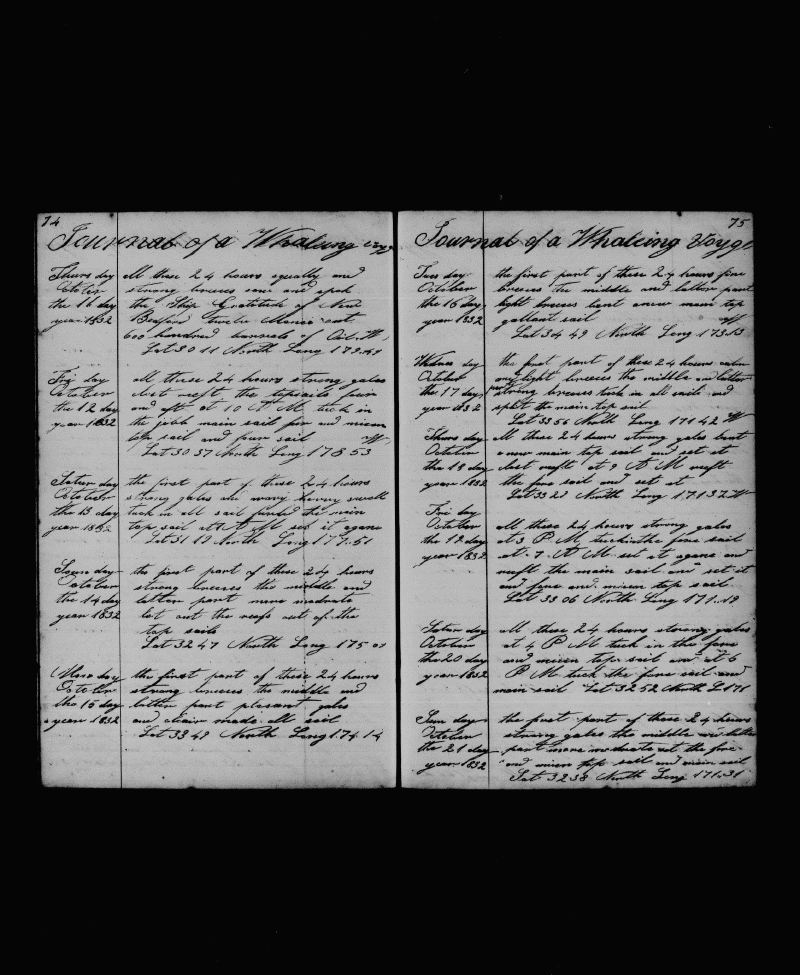 74
Journal of a Whaleing Voyge
Thurs day All these 24 hours squally and
October strong breeses
the 11 day the Ship Gratitude of New
year 1832 Bedford twelve
600 hundred barrels of Oil W
Lat 30 11 North Long 179
Fri day All these 24 hours strong gales
October clost reeft the topsails four
the 12 day and aft at 10 P M tuck in
year 1832 the jibb main sail fur and misen
top sail and four sail W
Lat 30 57 North Long 178 53
Satur day the first part of these 24 hours
October strong gales and heavy swell
the 13 day tuck in all sail furled the main
year 1832 top sail at A M set it agane
Lat 31 19 North Long 177.51
Soun day the first part of these 24 hours
October strong breeses the middle and
the 14 day latter part more modrate
year 1832 let out the reefs out of the
top sails
Lat 32 47 North Long 175
Mon day the first part of these 24 hours
October strong breeses the middle and
the 15 day latter part plesant gales
year 1832 and clair made All sail
Lat 33 49 North Long 174 14
75
Journal of a Whaleing Voyge
Tues day the first part of these 24 hours fine
October breeses the middle and latter part
the 16 day light breeses bent anew main top
year 1832 gallant sail W
Lat 34 49 North Long 173.13
Wednes day the first part of these 24 hours calm
October light breeses the middle and latter
the 17 day part strong breeses tuck in all sail and
year 1832 split the main top sail
Lat 33 56 North Long 171 42 W
Thurs day All these 24 hours strong gales bent
October a new main top sail and set it
the 18 day clost reeft at 9 A M reeft
year 1832 the fore sail and set it
Lat 33 23 North Long 171 37 W
Fri day
October All these 24 hours strong gales
the 19 day at 3 P M tuck in the fore sail
year 1832 at 7 A M set it agane and
reeft the main sail and set it
and fore and misen top sail
Lat 33 06 North Long 171.19
Satur day All these 24 hours strong gales
October at 4 P M tuck in the fore
the 20 day and misen top sail and at 6
year 1832 P M tuck the fore sail and
main sail Lat 32 52 North L 171
Sun day the first part of these 24 hours
October strong gales the middle and latter
the 21 day part more modrate set the fore
year 1832 and misen top sail and main sail
Lat 32 38 North Long 171.31